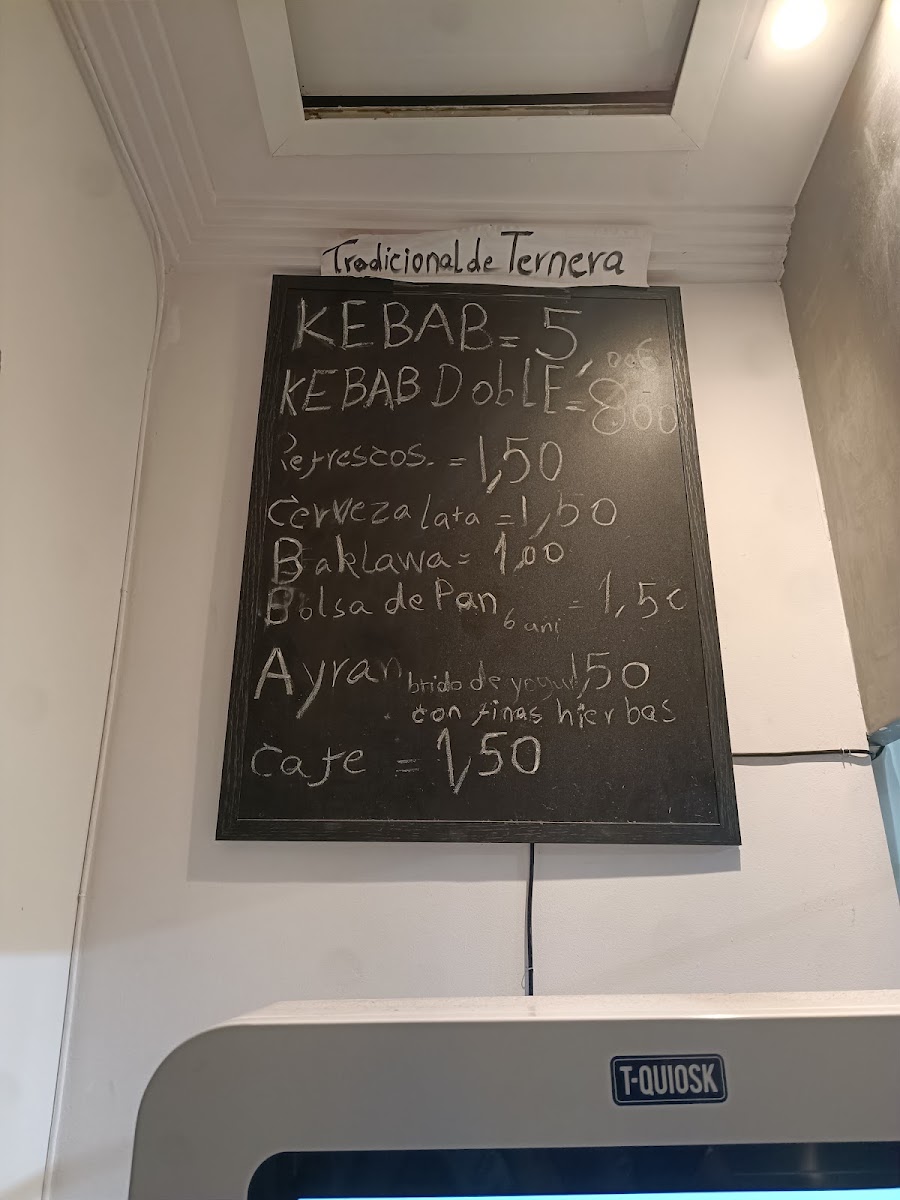 Tradicional de Ternera
KEBAB = 5,00€
KEBAB DoblE = 8'00
Refrescos. = 1,50
Cerveza lata = 1,50
Baklawa = 1,00
Bolsa de Pan 6 uni = 1,5€
Ayran brido de yogur 1,50
con finas hierbas
Cafe = 1,50
T-QUIOSK